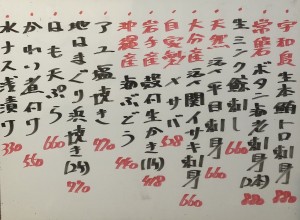 宇和島 生本鮪トロ刺身 880
ボタン海老刺身(2本) 880
生ミンク鯨刺し 660
天然 活〆平目刺身 660
大分産 活〆関イサキ刺身 660
自家製 〆サバ 528
岩手産 殻付生かき 418
沖縄産 海ぶどう 440
アユ塩焼き 770
地はまぐり浜焼き 770
はも天ぷら 660
かれい煮付け 550
水ナス浅漬け 330